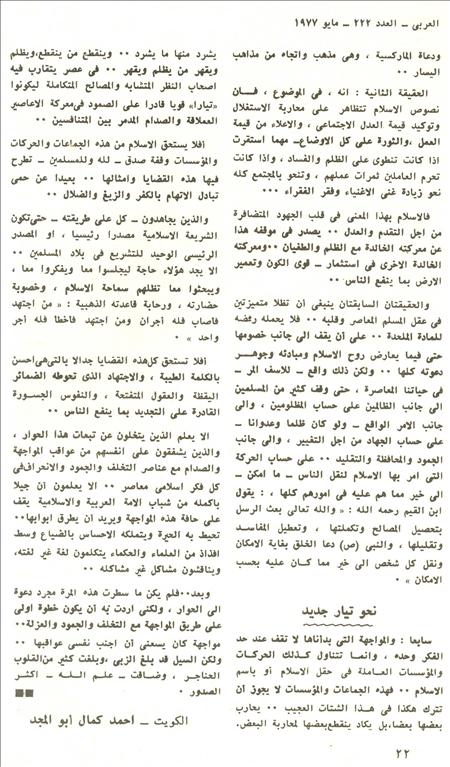 العربي ـ العدد ٢٢٢ ـ مايو ١٩٧٧
ودعاة الماركسية ، وهي مذهب واتجاه من مذاهب
اليسار ٠٠
الحقيقة الثانية : انه ، في الموضوع ، فــان
نصوص الاسلام تتظاهر على محاربة الاستغلال
وتوكيد قيمة العدل الاجتماعي ، والاعلاء من قيمة
العمل ،والثورة على كل الاوضاع ـ مهما استقرت
اذا كانت تنطوى على الظلم والفساد ، واذا كانت
تحرم العاملين ثمرات عملهم ، وتنحو بالمجتمع كله
نحو زيادة غنى الاغنياء وفقر الفقراء ٠٠٠
فالاسلام بهذا المعنى في قلب الجهود المتضافرة
من اجل التقدم والعدل ٠٠ يصدر في موقفه هذا
عن معركته الخالدة مع الظلم والطغيان ٠٠ومعركته
الخالدة الاخرى في استثمار ـ قوى الكون وتعمير
الارض بما ينفع الناس ٠٠
والحقيقتان السابقتان ينبغى ان تظلا متميزتين
في عقل المسلم المعاصر وقلبه ٠٠ فلا يحمله رفضه
للمادة الملحدة ٠٠ على أن يقف الى جانب خصومها
حتى فيما يعارض روح الاسلام ومبادئه وجوهــر
دعوته كلها ٠٠ ولكن ذلك واقع ـ للاسف المر ـ
في حياتنا المعاصرة ، حتى وقف كثير من المسلمين
الى جانب الظالمين على حساب المظلومين ، والى
جانب الامر الواقع ـ ولو كان ظلما وعدوانا ـ
على حساب الجهاد من اجل التغيير ، والى جانب
الجمود والمحافظة والتقليد ٠٠ على حساب الحركة
التى امر بها الاسلام لنقل الناس ـ ما امكن ـ
الى خير مما هم عليه في امورهم كلها ، : يقول
ابن القيم رحمه الله : « والله تعالى بعث الرسل
بتحصيل المصالح وتكملتها ، وتعطيل المفاســد
وتقليلها ، والنبي (ص) دعا الخلق بغاية الامكان
ونقل كل شخص الى خير مما كــان عليه بحسب
الامكان » ٠
نحو تيار جديد
سابعا : والمواجهة التى بدأناها لا تقف عند حد
الفكر وحده ، وانمــا تتناول كــذلك الحركات
والمؤسسات العاملة في حقل الاسلام أو باسم
الاسلام ٠٠ فهذه الجماعات والمؤسسات لا يجوز أن
تترك هكذا في هــذا الشتات العجيب ٠٠ يحارب
بعضها بعضا،بل يكاد ينقطع بعضها لمحاربة البعض.
يشرد منها ما يشرد ٠٠ وينقطع من ينقطع،ويظلم
ويقهر من يظلم ويقهر ٠٠ في عصر يتقارب فيه
اصحاب النظر المتشابه والمصالح المتكاملة ليكونوا
«تيارا» قويا قادرا على الصمود في معركة الاعاصير
العملاقة والصدام المدمر بين المتنافسين ٠٠
أفلا يستحق الاسلام من هذه الجماعات والحركات
والمؤسسات وقفة صدق ـ لله وللمسلمين ـ تطرح
فيها هذه القضايا وامثالها ٠٠ بعيدا عن حمى
تبادل الاتهام بالكفر والزيغ والضلال ٠٠
والذين يجاهدون ـ كل على طريقته ـ حتى تكون
الشريعة الاسلامية مصدرا رئيسيا ، أو المصدر
الرئيسي الوحيد للتشريع في بلاد المسلمين ٠٠
الا يجد هؤلاء حاجة ليجلسوا معا ويفكروا معا ،
ويبحثوا معا تظلهم سماحة الاسلام ، وخصوبة
حضارته ، ورحابة قاعدته الذهبية : « من اجتهد
فأصاب فله أجران ومن اجتهد فأخطأ فله أجر
واحد » ٠
أفلا تستحق كل هذه القضايا جدالا بالتى هى احسن
بالكلمة الطيبة ، والاجتهاد الذى تحوطه الضمائر
اليقظة والعقول المتفتحة ، والنفوس الجســورة
القادرة على التجديد بما ينفع الناس ٠٠
الا يعلم الذين يتخلون عن تبعات هذا الحوار ،
والذين يشفقون على انفسهم من عواقب المواجهة
والصدام مع عناصر التخلف والجمود والانحراف في
كل فكر اسلامى معاصر ٠٠ الا يعلمون أن جيلا
باكمله من شباب الامة العربية والاسلامية يقف
على حافة هذه المواجهة ويريد أن يطرق ابوابها٠٠
تحيط به الحيرة ويتملكه الاحساس بالضياع وسط
افذاذ من العلماء والحكماء يتكلمون لغة غير لغته،
ويناقشون مشاكل غير مشاكله ٠٠
وبعد٠٠فلم يكن ما سطرت هذه المرة مجرد دعوة
الى الحوار ، ولكنى أردت به أن يكون خطوة أولى
على طريق المواجهة مع التخلف والجمود والعزلة٠٠
مواجهة كان يسعنى أن اجنب نفسى عواقبها ٠٠
ولكن السيل قد بلغ الزبى ،وبلغت كثير من القلوب
الحناجر ، وضاقت ـ علم اللــه ـ اكثــر
الصدور ٠
الكويت ـ احمد كمال أبو المجد
٢٢